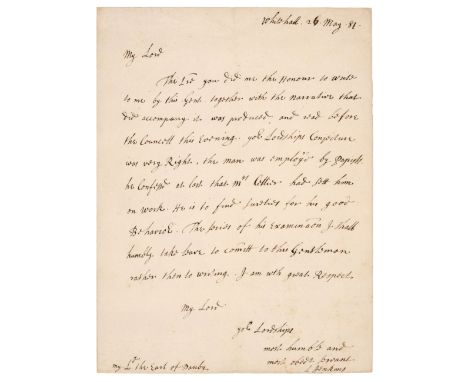 Whitehall. 26 May 81.
My Lord
The Lre you did me the Honour to write
to me by this Gent together with the narrative that
did accompany it was produced, and read before
the Councell this Evening. yor Lordships Conjecture
was very Right, the man was employ'd by Papists
he Confess'd at last that Mrs Cellier had sett him
on work. He is to find sureties for his good
Behavior. The series of his Examinaon I shall
humbly take leave to comitt to this Gentleman
rather then to writing. I am wth great Respect
My Lord
yor Lordships
most humble and
most obedt servant
LJenkins
my Ld the Earl of Danby